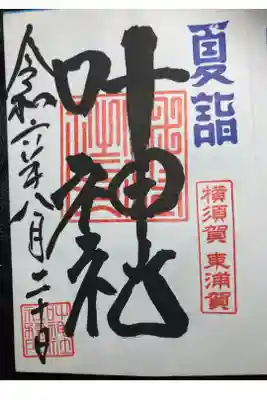 夏詣
横須賀 東浦賀
叶神社
令和六年八月二十日